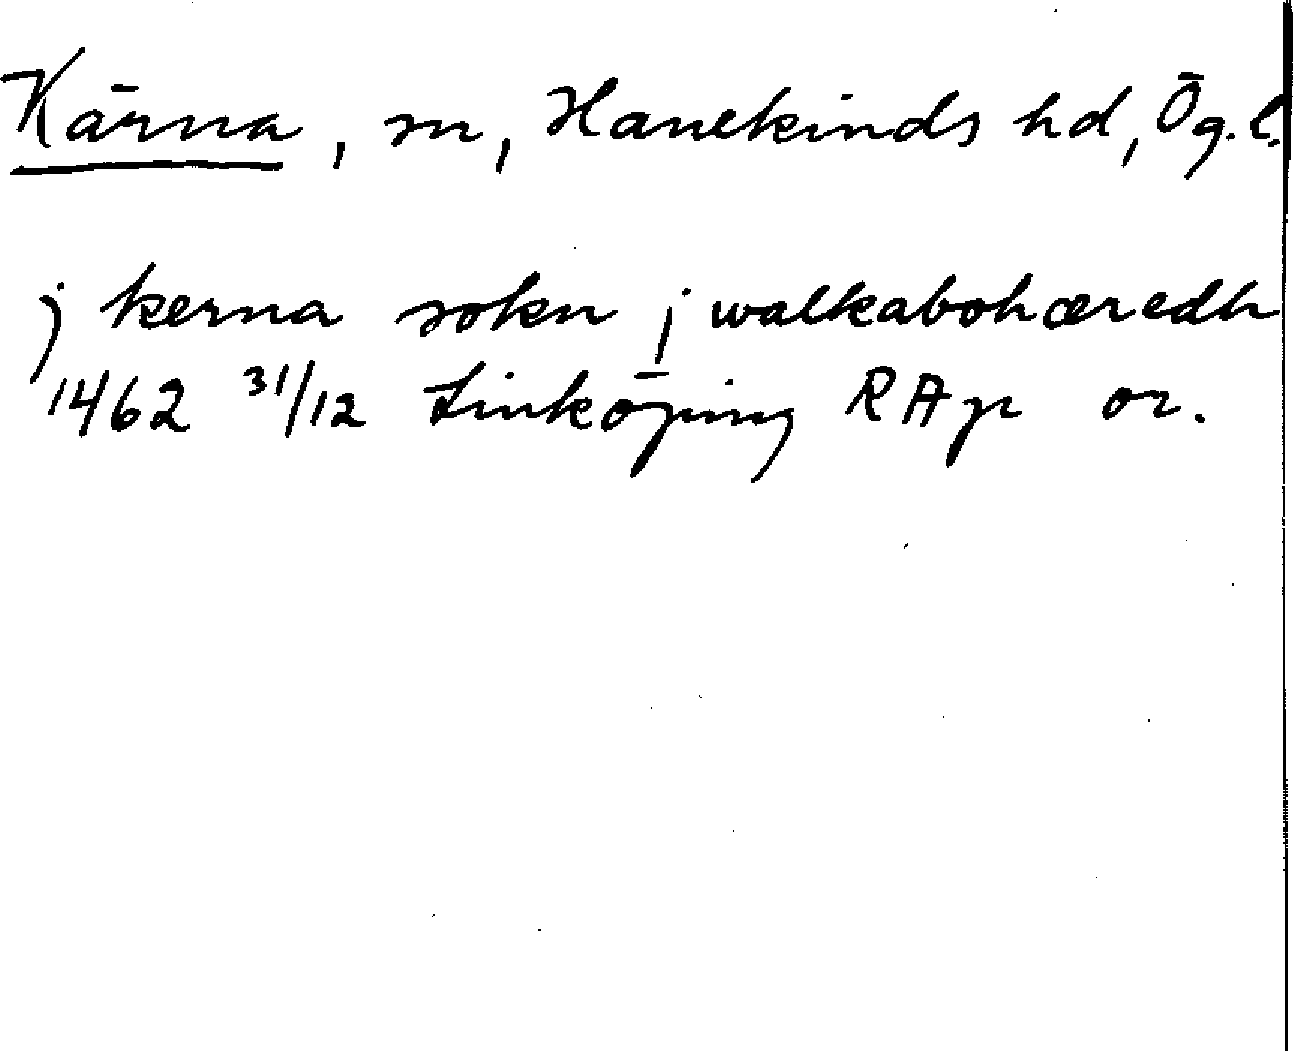 Kärna, sn, Hanekinds hd, Ög. l.
j kerna sokn j walkabohæredh
1462 31/12 Linköping RAp or.